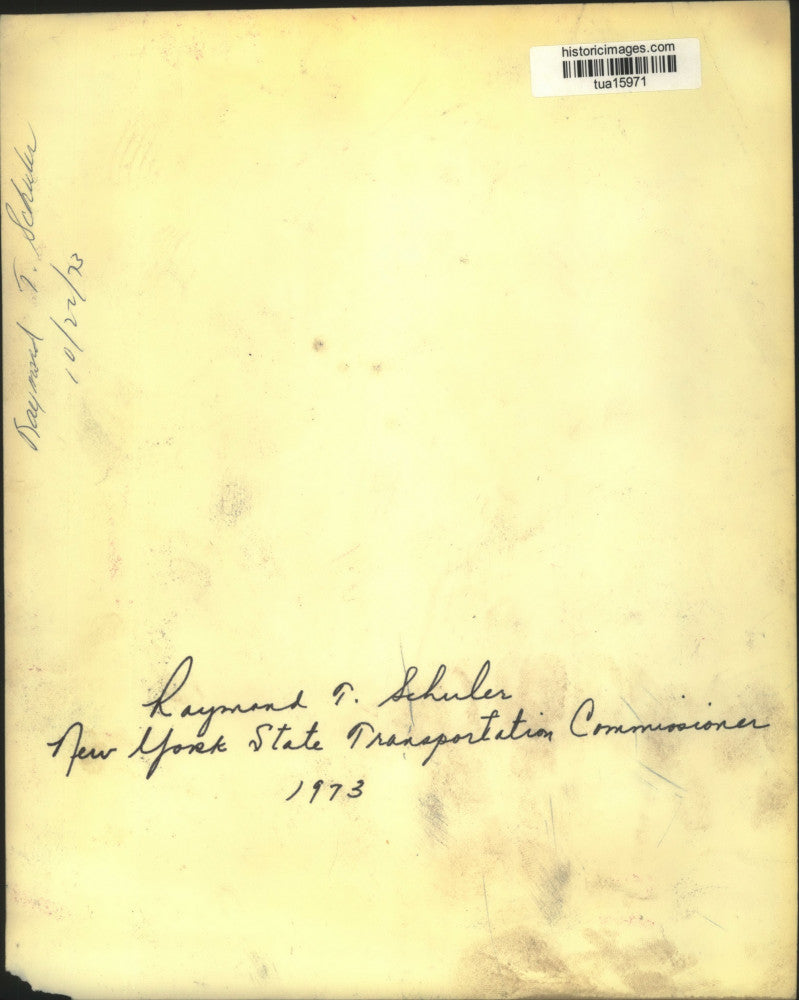 historicimages.com
tua15971
Raymond T. Schuler
10/22/73
Raymond T. Schuler
New York State Transportation Commissioner
1973